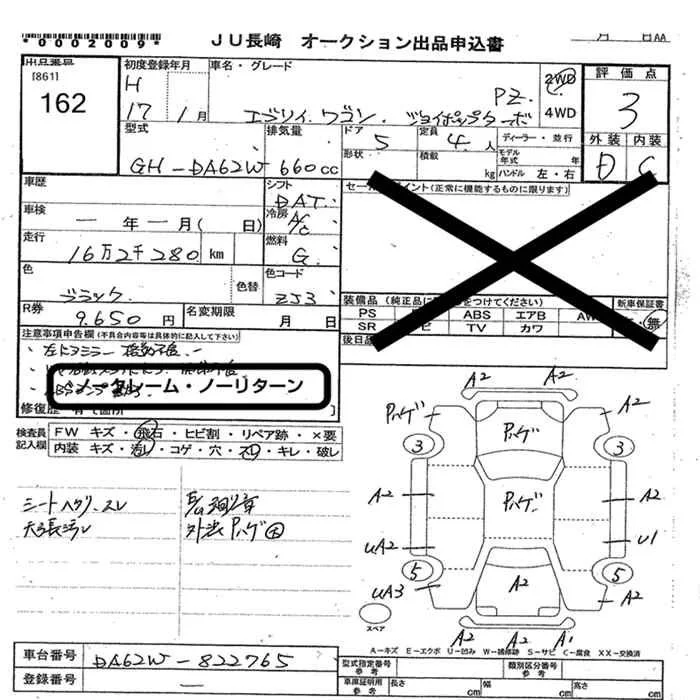 *0002009*
JU長崎 オークション出品申込書
月 日AA
出品番号
[861]
162
初度登録年月
H
17 1月
車名・グレード
エブリイ.ワゴン. ジョイポップターボ
PZ.
2WD
4WD
評価点
3
外装 内装
D C
型式
GH-DA62W
排気量
660cc
ドア
5
定員
4人
ディーラー・並行
形状
積載
kg
モデル年式 年
ハンドル 左・右
車歴
シフト
DAT.
セールスポイント(正常に機能するものに限ります)
車検
一年一月( 日)
冷房
A/C
走行
16万2千280 km
燃料
G.
色
ブラック.
色替
色コード
ZJ3
R券
9.650円
名変期限
月 日
装備品
PS
ABS
エアB
AW
SR
TV
カワ
新車保証書
無
後日品
注意事項申告欄(不具合内容等は具体的に記入して下さい)
ノークレーム・ノーリターン
修復歴
検査員
記入欄
FW キズ・飛石・ヒビ割・リペア跡・×要
内装 キズ・汚レ・コゲ・穴・スレ・キレ・破レ
シートハクリ.スレ
天張汚レ
外法Pハゲ大
A2
Pハゲ
A2
Pハゲ
3
3
A2
Pハゲ
A2
uA2
U1
5
5
uA3
A2
A2
スペア
A2 A2 A1
A-キズ E-エクボ U-凹み W-補修跡 S-サビ C-腐食 XX-交換済
車台番号
DA62W-822765
登録番号
一
型式指定番号
参考
類別区分番号
参考
車庫証明用
参考
長さ
cm
幅
cm
高さ
cm